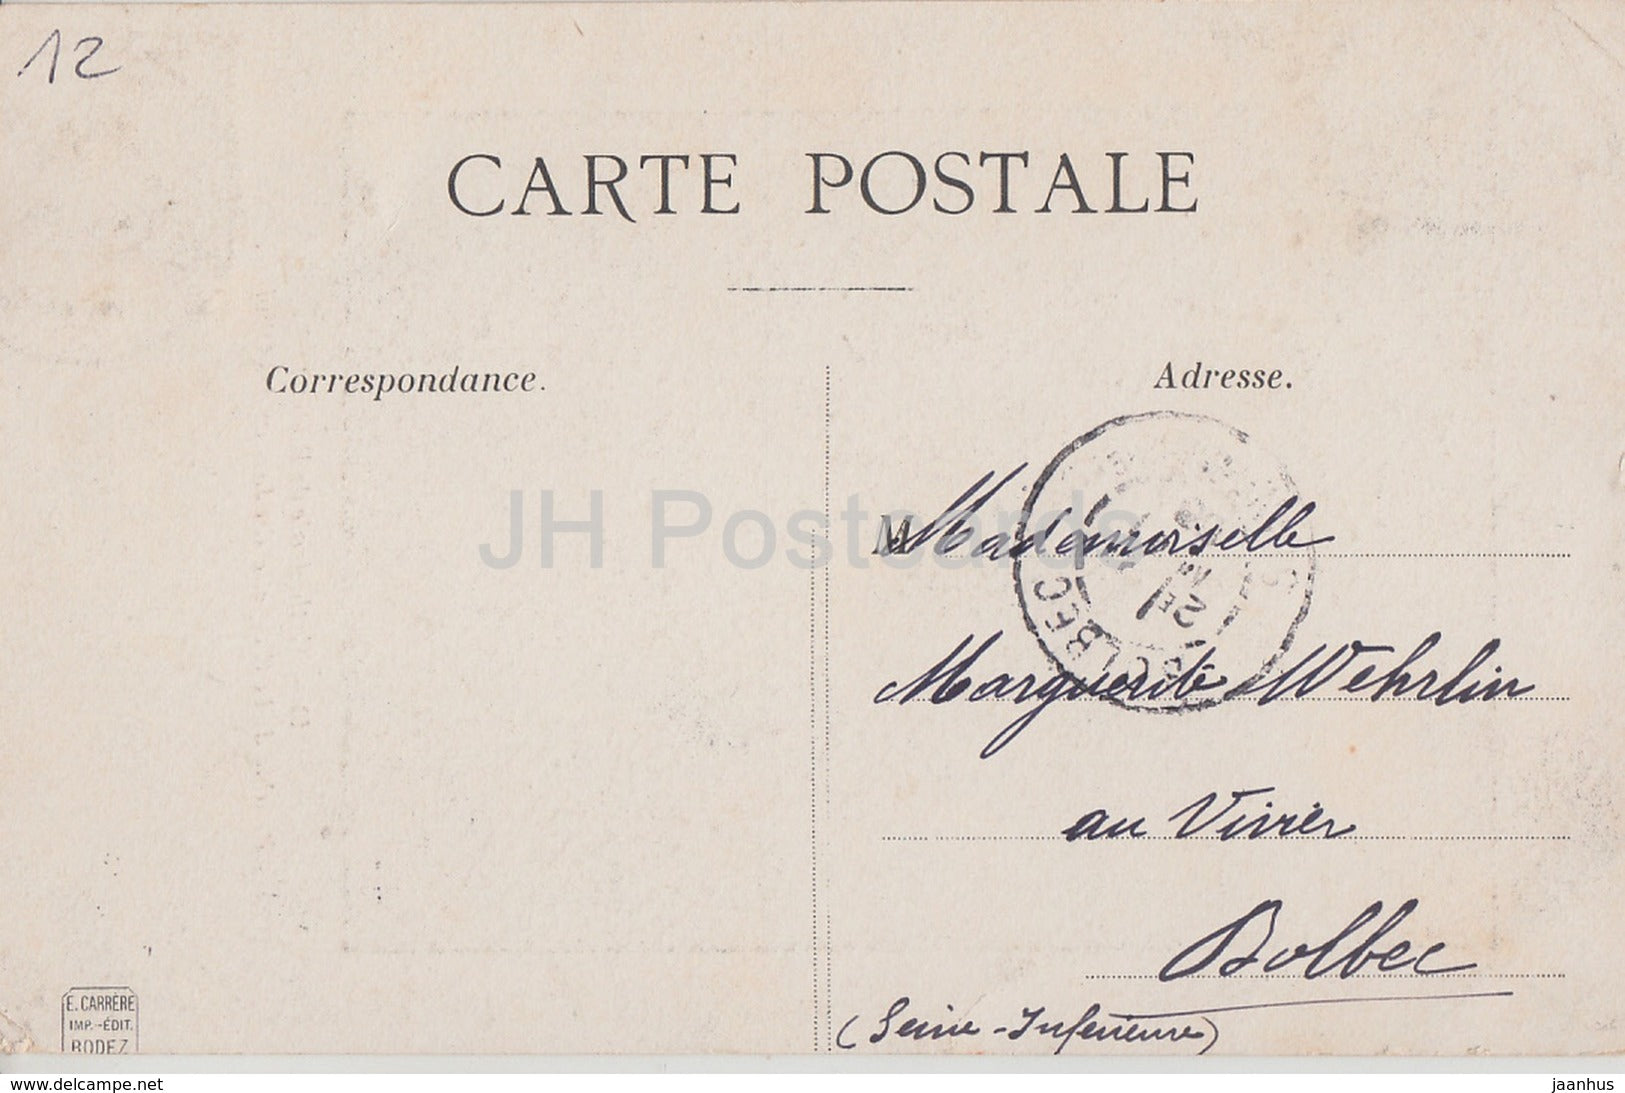 12
CARTE POSTALE
Correspondance.
Adresse.
JH Postcards
BOLBEC
25
M Mademoiselle
Marguerite Wehrlin
au Vivier
Bolbec
(Seine-Inferieure)
E. CARRÈRE
IMP.-ÉDIT.
RODEZ
delcampe.net
jaanhus